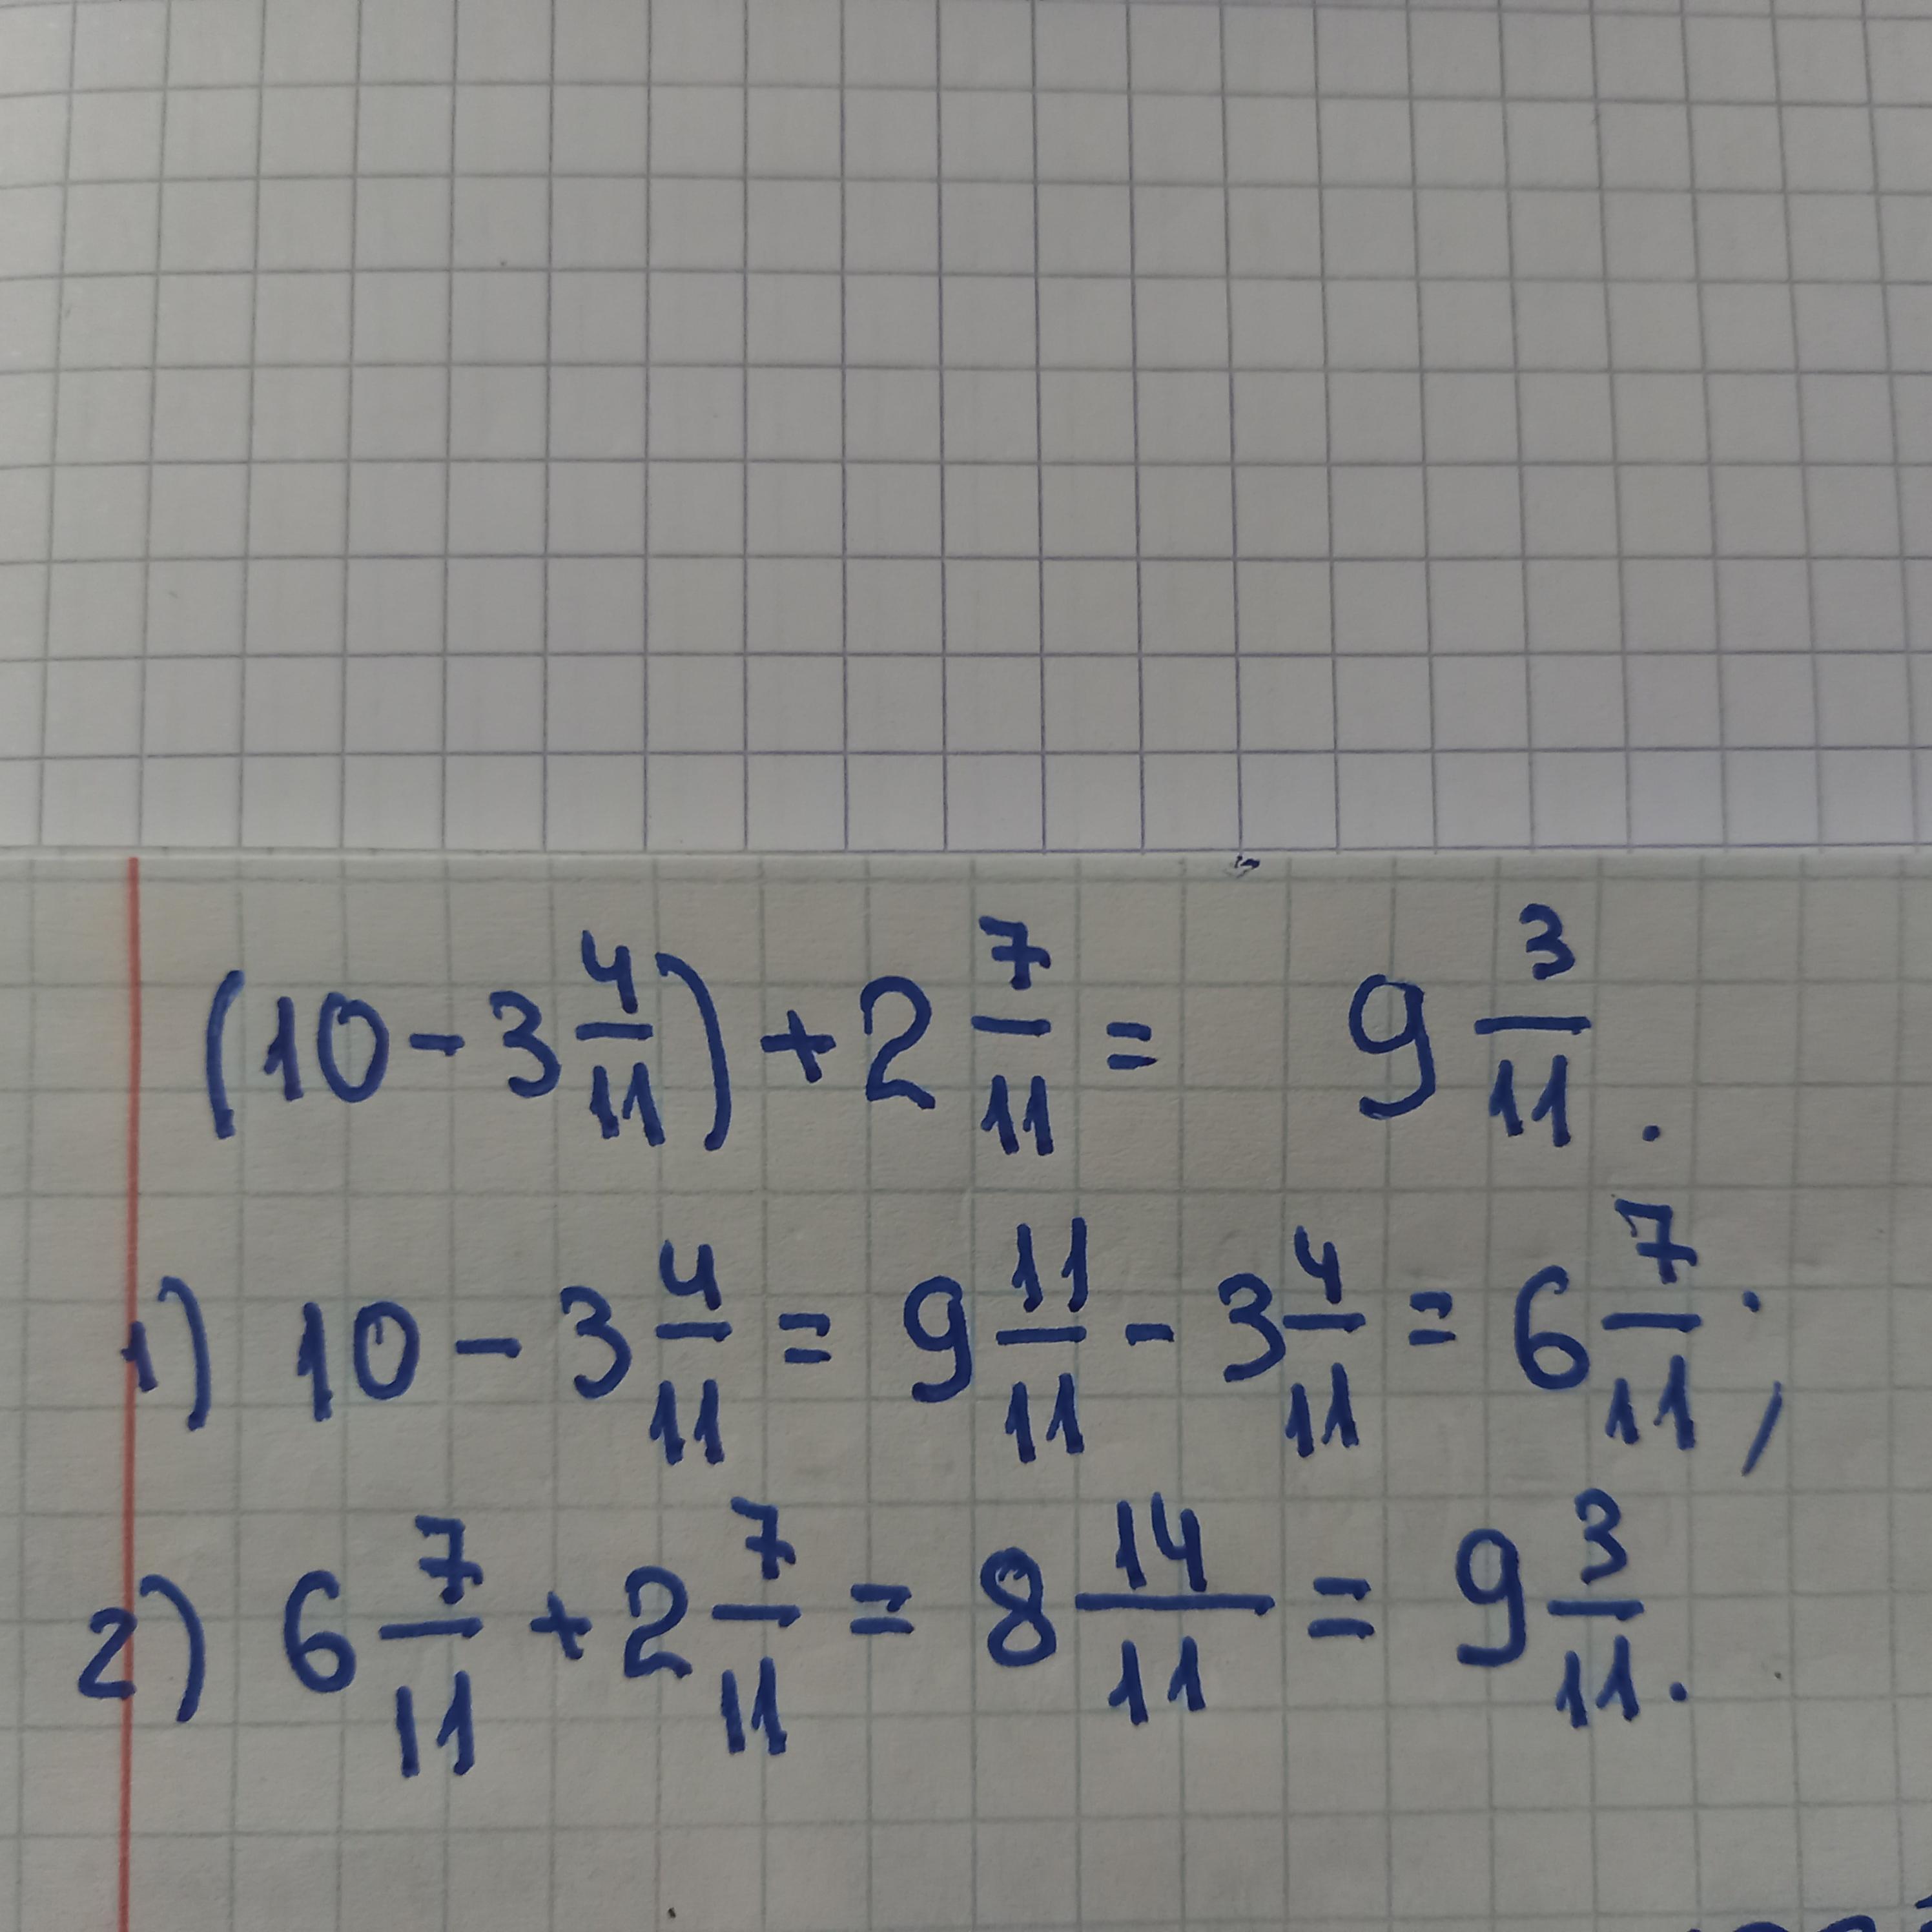 (10 - 3 4/11) + 2 7/11 = 9 3/11.
1) 10 - 3 4/11 = 9 11/11 - 3 4/11 = 6 7/11;
2) 6 7/11 + 2 7/11 = 8 14/11 = 9 3/11.